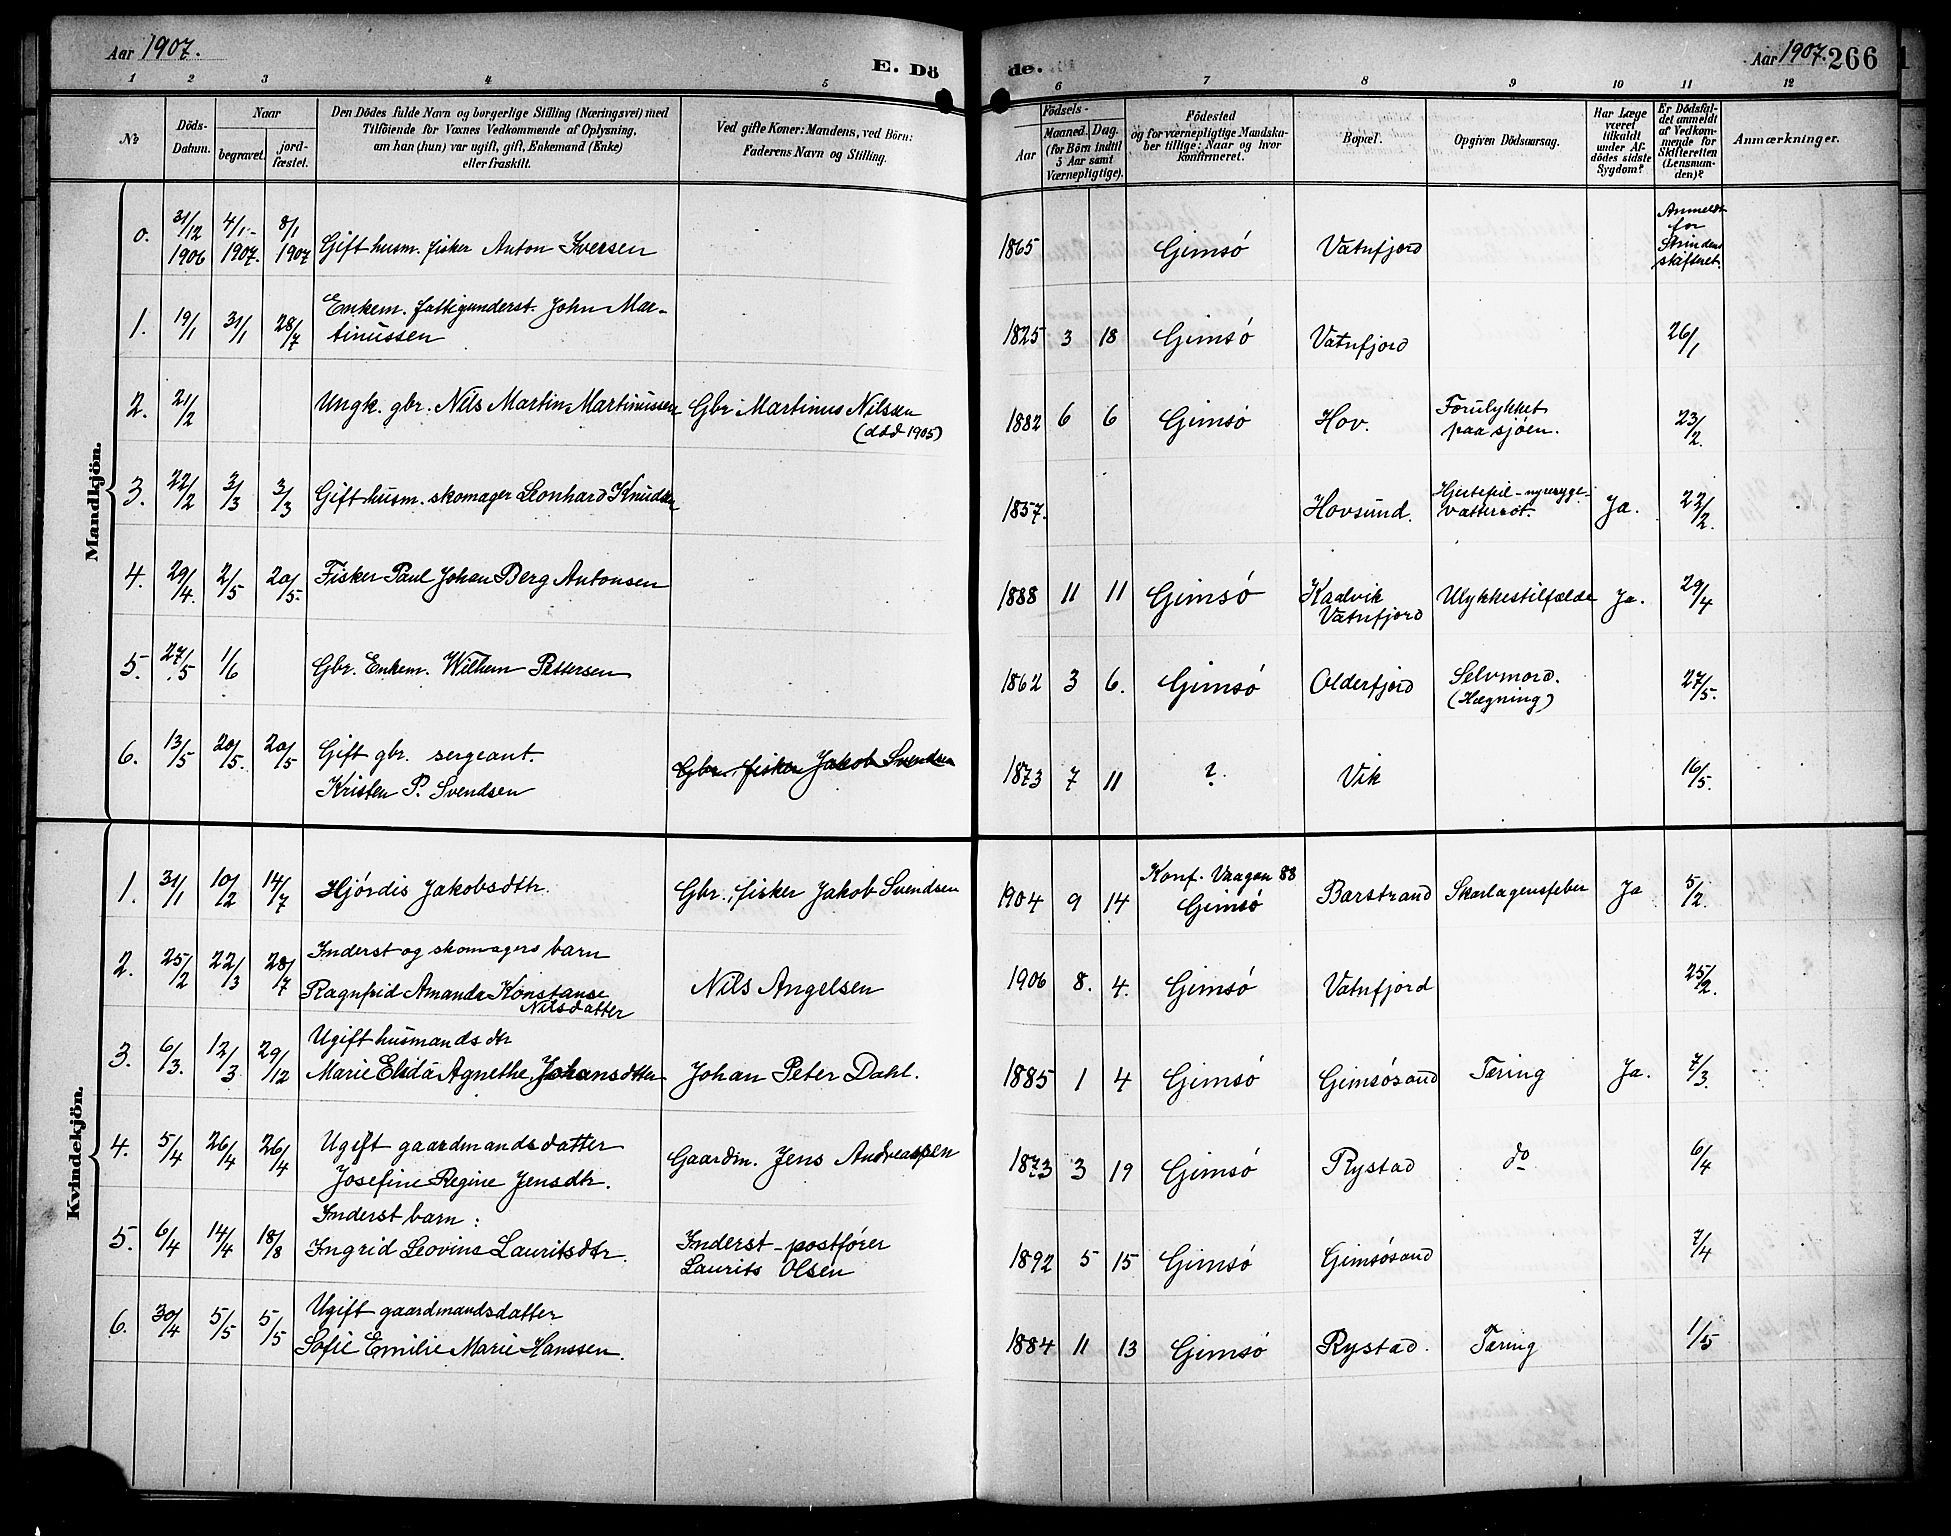 Aar 1907.
E. Dö
de.
Aar 1907. 266
1 2 3 4 5 6 7 8 9 10 11 12
No
Döds-
Datum.
Naar
begravet.
jord-
fæstet.
Den Dödes fulde Navn og borgerlige Stilling (Næringsvei) med
Tilföiende for Voxnes Vedkommende af Oplysning,
om han (hun) var ugift, gift, Enkemand (Enke)
eller fraskilt.
Ved gifte Koner: Mandens, ved Börn:
Faderens Navn og Stilling.
Födsels-
Aar
Maaned. Dag.
(for Börn indtil
5 Aar samt
Værnepligtige).
Födested
og for værnepligtige Mandska-
ber tillige: Naar og hvor
konfirmeret.
Bopæl.
Opgiven Dödsaarsag.
Har Læge
været
tilkaldt
under Af-
dödes sidste
Sygdom?
Er Dödsfal-
det anmeldt
af Vedkom-
mende for
Skifteretten
(Lensman-
den)?
Anmærkninger.
Mandkjön.
0. 31/12 1906 4/1 1907. 8/1 1907 Gift husm. fisker Anton Iversen 1865 Gimsó Vatnfjord
Anmeldt
for
Strindens
skifteret.
1. 19/1 31/1 28/7 Enkem. fattigunderst. John Mar-
tinussen 1825 3 18 Gimsó Vatnfjord 26/1
2. 21/2 Ungk. gbr. Nils Martin Martinussen Gbr Martinus Nilssen
(død 1905)
1882 6 6 Gimsó Hov. Forulykket
paa sjóen. 23/2.
3. 22/2 3/3 3/3 Gift husm. skomager Leonhard Knudsen 1857. Hovsund. Hjertefeil - nyresyge-
vattersot. Ja. 22/2.
4. 29/4. 2/5 20/5. Fisker Paul Johan Berg Antonsen 1888 11 11 Gimsó Kaalvik
Vatnfjord Ulykkestilfælde Ja. 29/4
5. 27/5 1/6 Gbr. Enkem. Wilhem Pettersen 1862 3 6. Gimsó Olderfjord Selvmord.
(Hægning) 27/5.
6. 13/5 20/5. 20/5 Gift gbr. sergeant.
Kristen P. Svendsen Gbr. fisker Jakob Svendsen 1873 7 11 ?. Vik 16/5.
Kvindekjön.
1. 31/1 10/2 14/7 Hjórdis Jakobsdtr. Gbr., fisker Jakob Svendsen 1904 9 14 Konf. Vaagan 88
Gimsó Barstrand Skarlagensfeber Ja 5/2.
2. 25/2 22/3 28/7 Inderst og skomagers barn
Ragnfrid Amanda Konstanse
Nilsdatter Nils Angelsen 1906 8. 4. Gimsó Vatnfjord 25/2.
3. 6/3. 12/3 29/12 Ugift husmands dtr
Marie Elida Agnethe Johansdtter Johan Peter Dahl. 1885 1 4 Gimsó Gimsósand Tæring Ja. 7/3.
4. 5/4 26/4 26/4 Ugift gaardmandsdatter
Josefine Regine Jensdtr. Gaardm. Jens Andreassen 1873 3 19 Gimsó Rystad do 6/4
5. 6/4 14/4 18/8 Inderst barn:
Ingrid Leovina Lauritsdtr. Inderst - postfører
Laurits Olsen 1892 5 15 Gimsó Gimsósand 7/4
6. 30/4 5/5 5/5 Ugift gaardmandsdatter
Sofie Emilie Marie Hanssen. 1884 11 13 Gimsó Rystad. Tæring 1/5